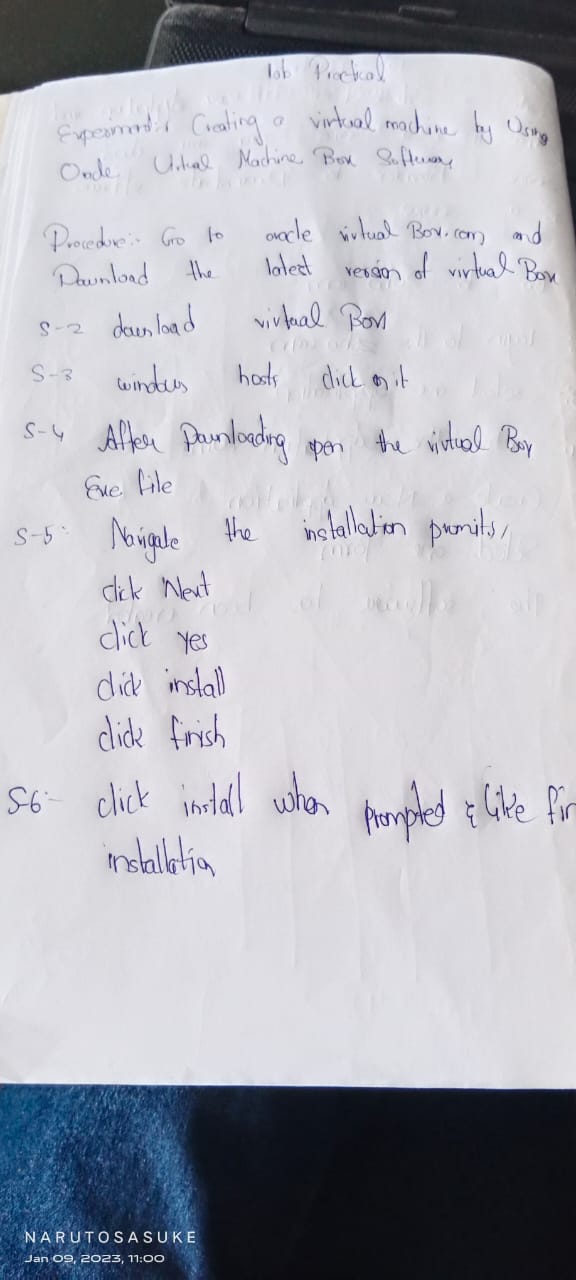 lab Practical
Experiment:1 Creating a virtual machine by Using
Oracle Virtual Machine Box Software
Procedure:- Go to oracle virtual Box.com and
Download the latest version of virtual Box
S-2 download virtual Box
S-3 windows hosts click on it
S-4 After Downloading open the virtual Box
Exe file
S-5:- Navigate the installation prompts,
click Next
click yes
click install
click finish
S-6:- click install when prompted & like fin
installation
NARUTOSASUKE
Jan 09, 2023, 11:00